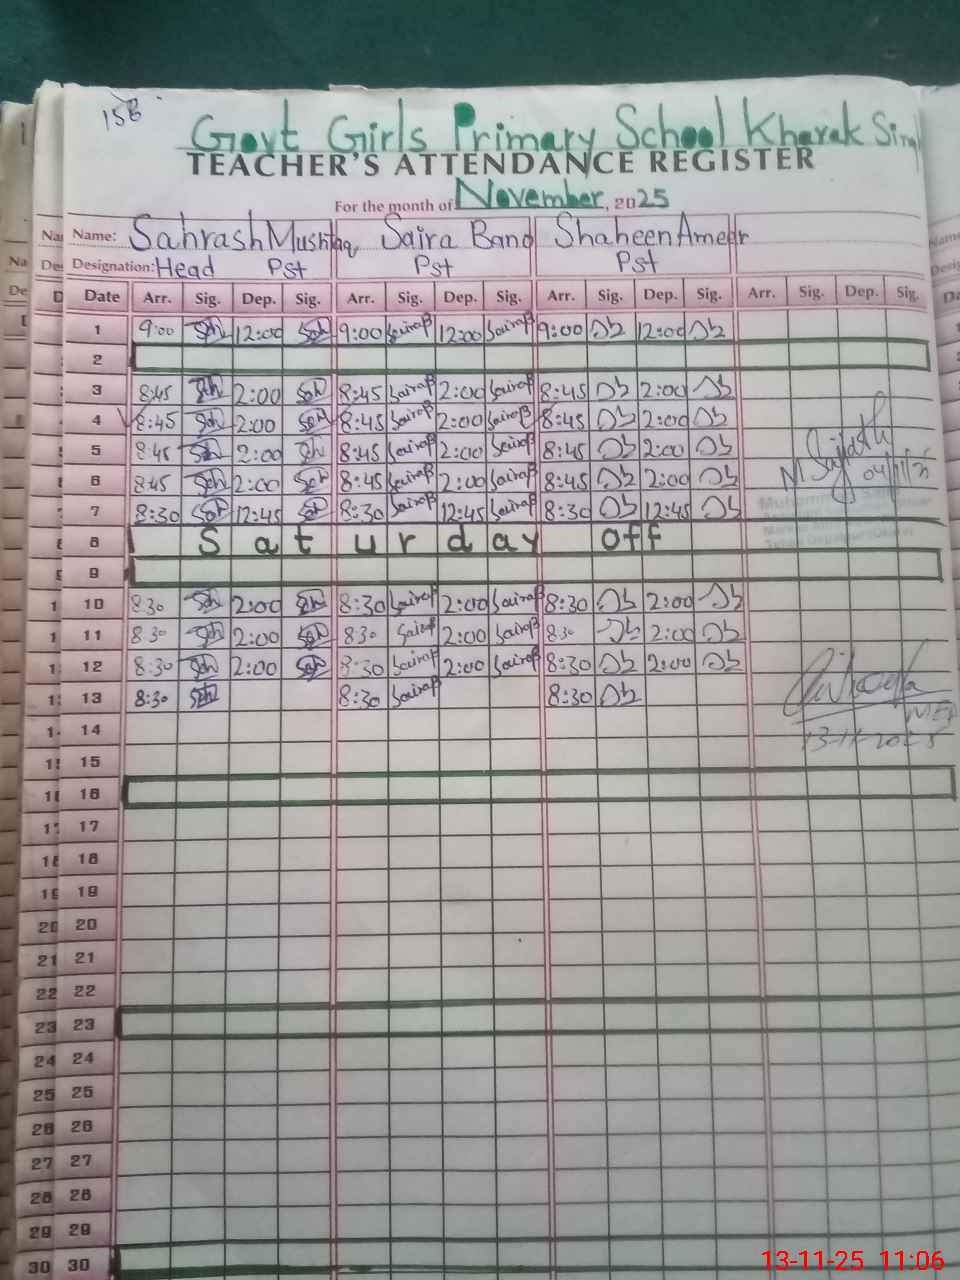 15B
Govt Girls Primary School Kharak Sing
TEACHER'S ATTENDANCE REGISTER
For the month of November, 2025
Name: Sahrash Mushtaq Saira Bano Shaheen Ameer
Designation: Head Pst Pst Pst
Date Arr. Sig. Dep. Sig. Arr. Sig. Dep. Sig. Arr. Sig. Dep. Sig. Arr. Sig. Dep. Sig.
1 9:00 12:00 9:00 SairaB 12:00 SairaB 9:00 12:00
2
3 8:45 2:00 8:45 SairaB 2:00 SairaB 8:45 2:00
4 8:45 2:00 8:45 SairaB 2:00 SairaB 8:45 2:00
5 8:45 2:00 8:45 SairaB 2:00 SairaB 8:45 2:00
6 8:45 2:00 8:45 SairaB 2:00 SairaB 8:45 2:00
7 8:30 12:45 8:30 SairaB 12:45 SairaB 8:30 12:45
8 Saturday off
9
10 8:30 2:00 8:30 SairaB 2:00 SairaB 8:30 2:00
11 8:30 2:00 8:30 SairaB 2:00 SairaB 8:30 2:00
12 8:30 2:00 8:30 SairaB 2:00 SairaB 8:30 2:00
13 8:30 8:30 SairaB 8:30
13-11-2025
14
15
16
17
18
19
20
21
22
23
24
25
26
27
28
29
30
13-11-25 11:06